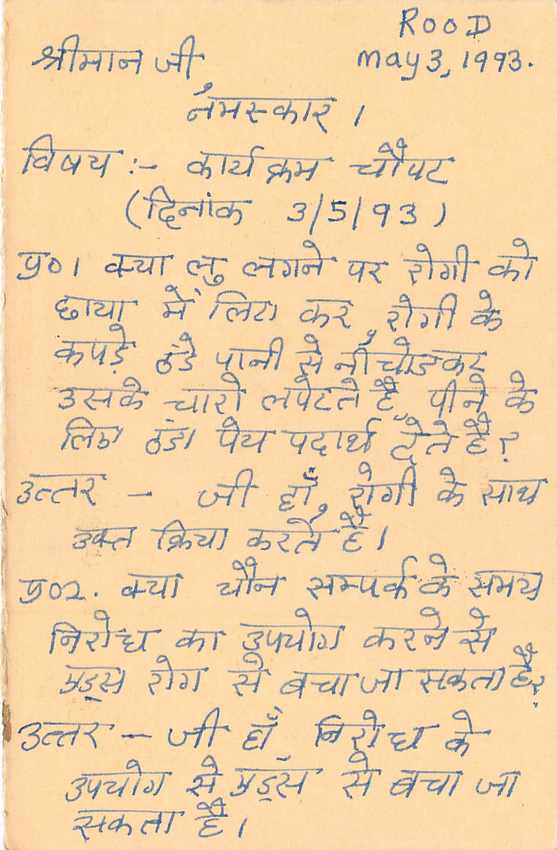 ROOD
श्रीमान जी
May 3, 1993.
नमस्कार ।
विषय :- कार्यक्रम चौपट
(दिनांक 3/5/93)
प्र०1 क्या लु लगने पर रोगी को
छाया में लिटा कर, रोगी के
कपड़े ठंडे पानी से नीचोडकर
उसके चारो लपेटते है, पीने के
लिए ठंडा पेय पदार्थ देते है?
उत्तर - जी हाँ, रोगी के साथ
उक्त क्रिया करते है।
प्र०2. क्या यौन सम्पर्क के समय
निरोध का उपयोग करने से
एड्स रोग से बचा जा सकता है?
उत्तर - जी हाँ निरोध के
उपयोग से एड्स से बचा जा
सकता है।